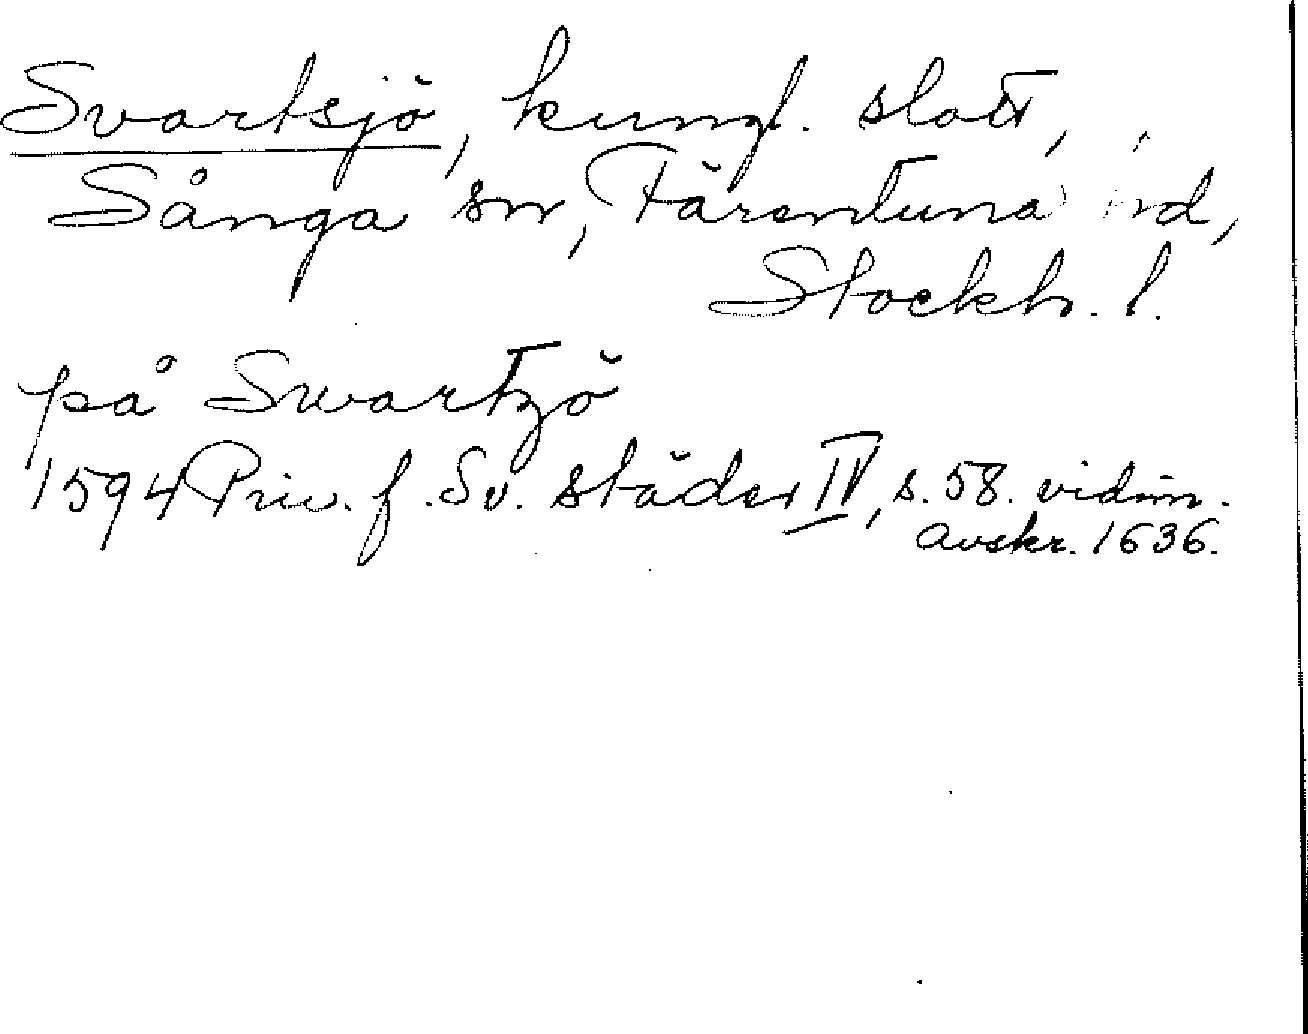 Svartsjö, kungl. slott, i
Sånga sn, Färentuna hd,
Stockh. l.
på Swartzö
1594 Priv. f. Sv. städer IV, s. 58. vidim.
avskr. 1636.